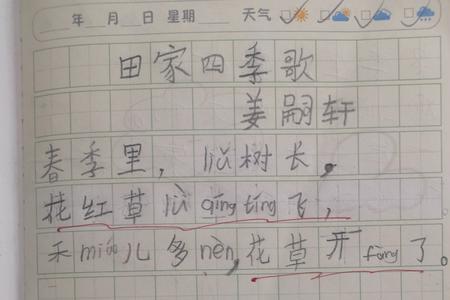 年 月 日 星期 天气
田家四季歌
姜嗣轩
春季里，liǔ树长，
花红草lǜ qīng tíng飞，
禾miáo儿多nèn，花草开fāng了。